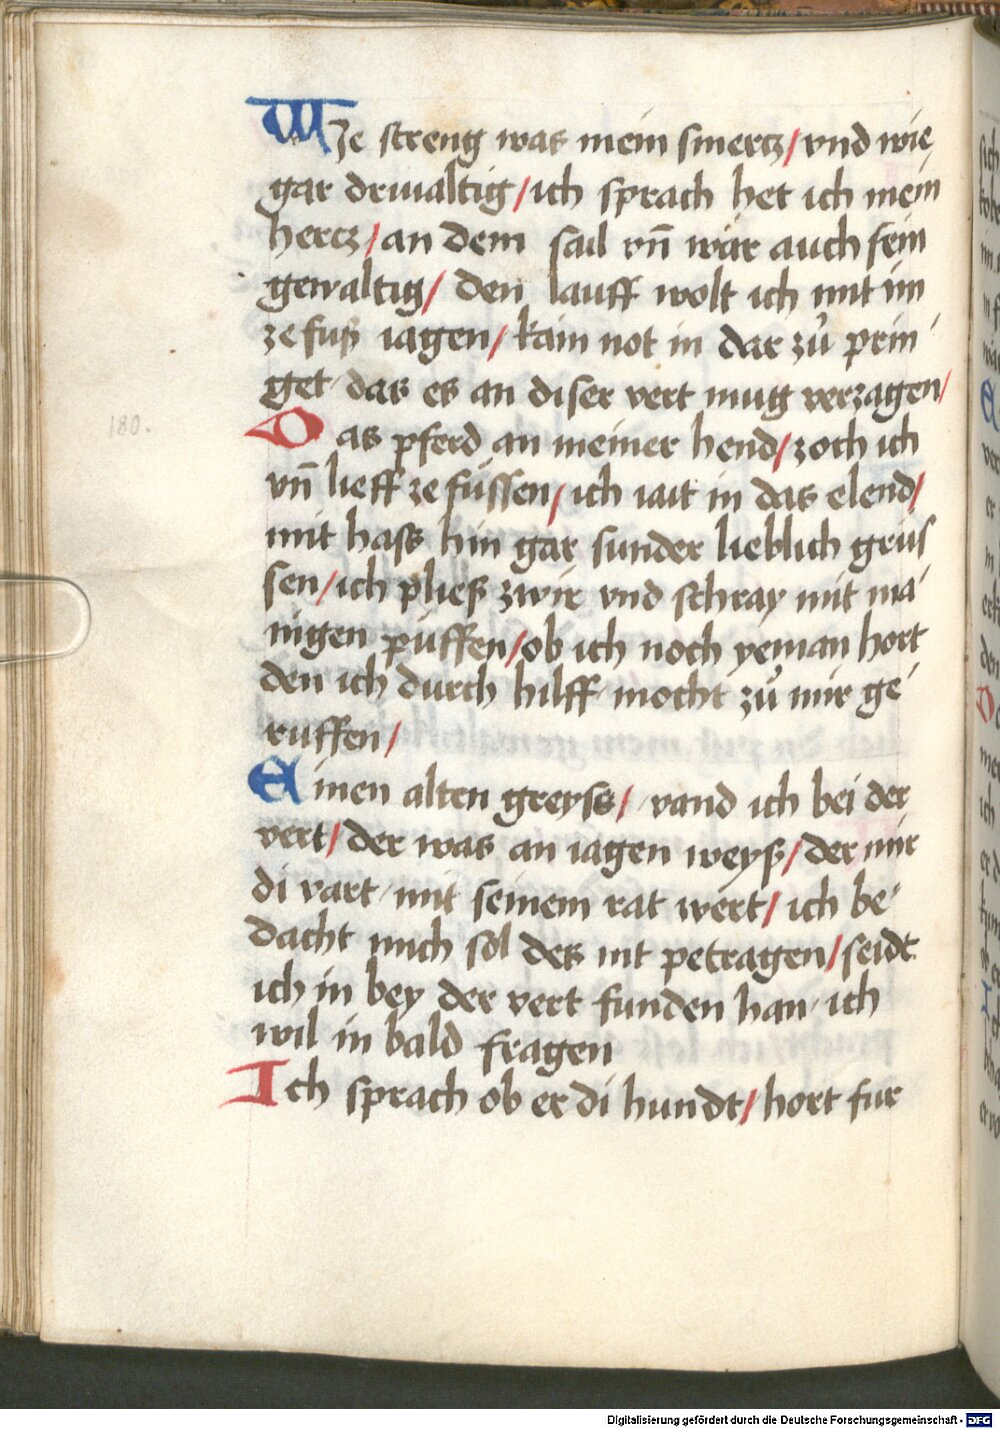 WIe streng was mein smercz / vnd wie
gar driualtig / ich sprach het ich mein
hercz / an dem sail vn̄ wär auch sein
gewaltig / den lauff wolt ich mit im
ze fuß iagen / kain not in dar zů prin
get das es an diser vert mug verzagen /
Das pferd an meiner hend / zoch ich
vn̄ lieff ze füssen / ich iait in das elend /
mit hass hin gar sunder lieblich grüs
sen / ich pließ zwir vnd schray mit ma
nigen püffen / ob ich noch yeman hort
den ich durch hilff mocht zů mir ge
ruffen /
Einen alten greyss / vand ich bei der
vert / der was an iagen weyß / der mir
di vart mit seinem rat wert / ich be
dacht mich sol des nit petragen / seidt
ich in bey der vert funden han ich
wil in bald fragen
Ich sprach ob er di hundt / hort fur
180.
Digitalisierung gefördert durch die Deutsche Forschungsgemeinschaft - DFG